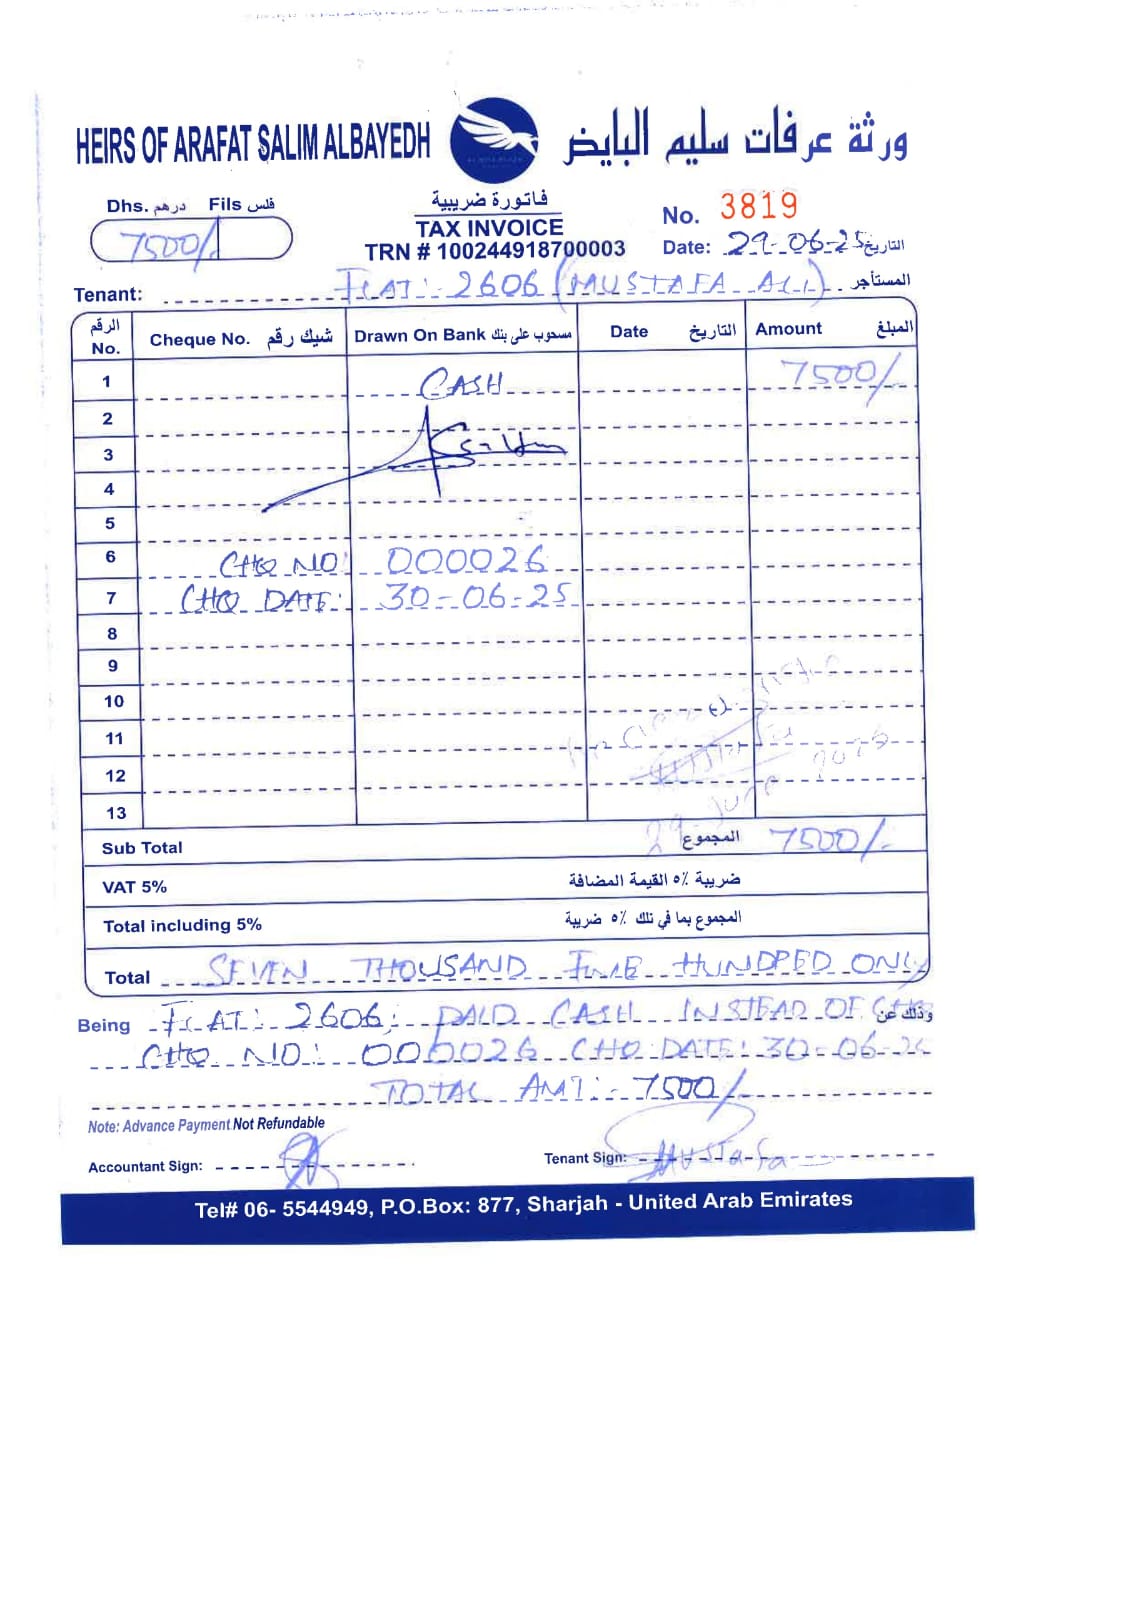 HEIRS OF ARAFAT SALIM ALBAYEDH
ورثة عرفات سليم البايض
Dhs. درهم Fils فلس
7500/-
فاتورة ضريبية
TAX INVOICE
TRN # 100244918700003
No. 3819
Date: 29-06-25 التاريخ
Tenant: FLAT: 2606 (MUSTAFA ALI) المستأجر
الرقم No. Cheque No. شيك رقم Drawn On Bank مسحوب على بنك Date التاريخ Amount المبلغ
1 CASH 7500/-
2
3
4
5
6 CHQ NO: 000026
7 CHQ DATE: 30-06-25
8
9
10
11
12
13
29 June 2025
Sub Total المجموع 7500/-
VAT 5% ضريبة ٥٪ القيمة المضافة
Total including 5% المجموع بما في ذلك ٥٪ ضريبة
Total SEVEN THOUSAND FIVE HUNDRED ONLY
Being FLAT: 2606; PAID CASH INSTEAD OF وذلك عن
CHQ NO: 000026 CHQ DATE: 30-06-25
TOTAL AMT:- 7500/-
Note: Advance Payment Not Refundable
Accountant Sign:
Tenant Sign: Mustafa
Tel# 06- 5544949, P.O.Box: 877, Sharjah - United Arab Emirates